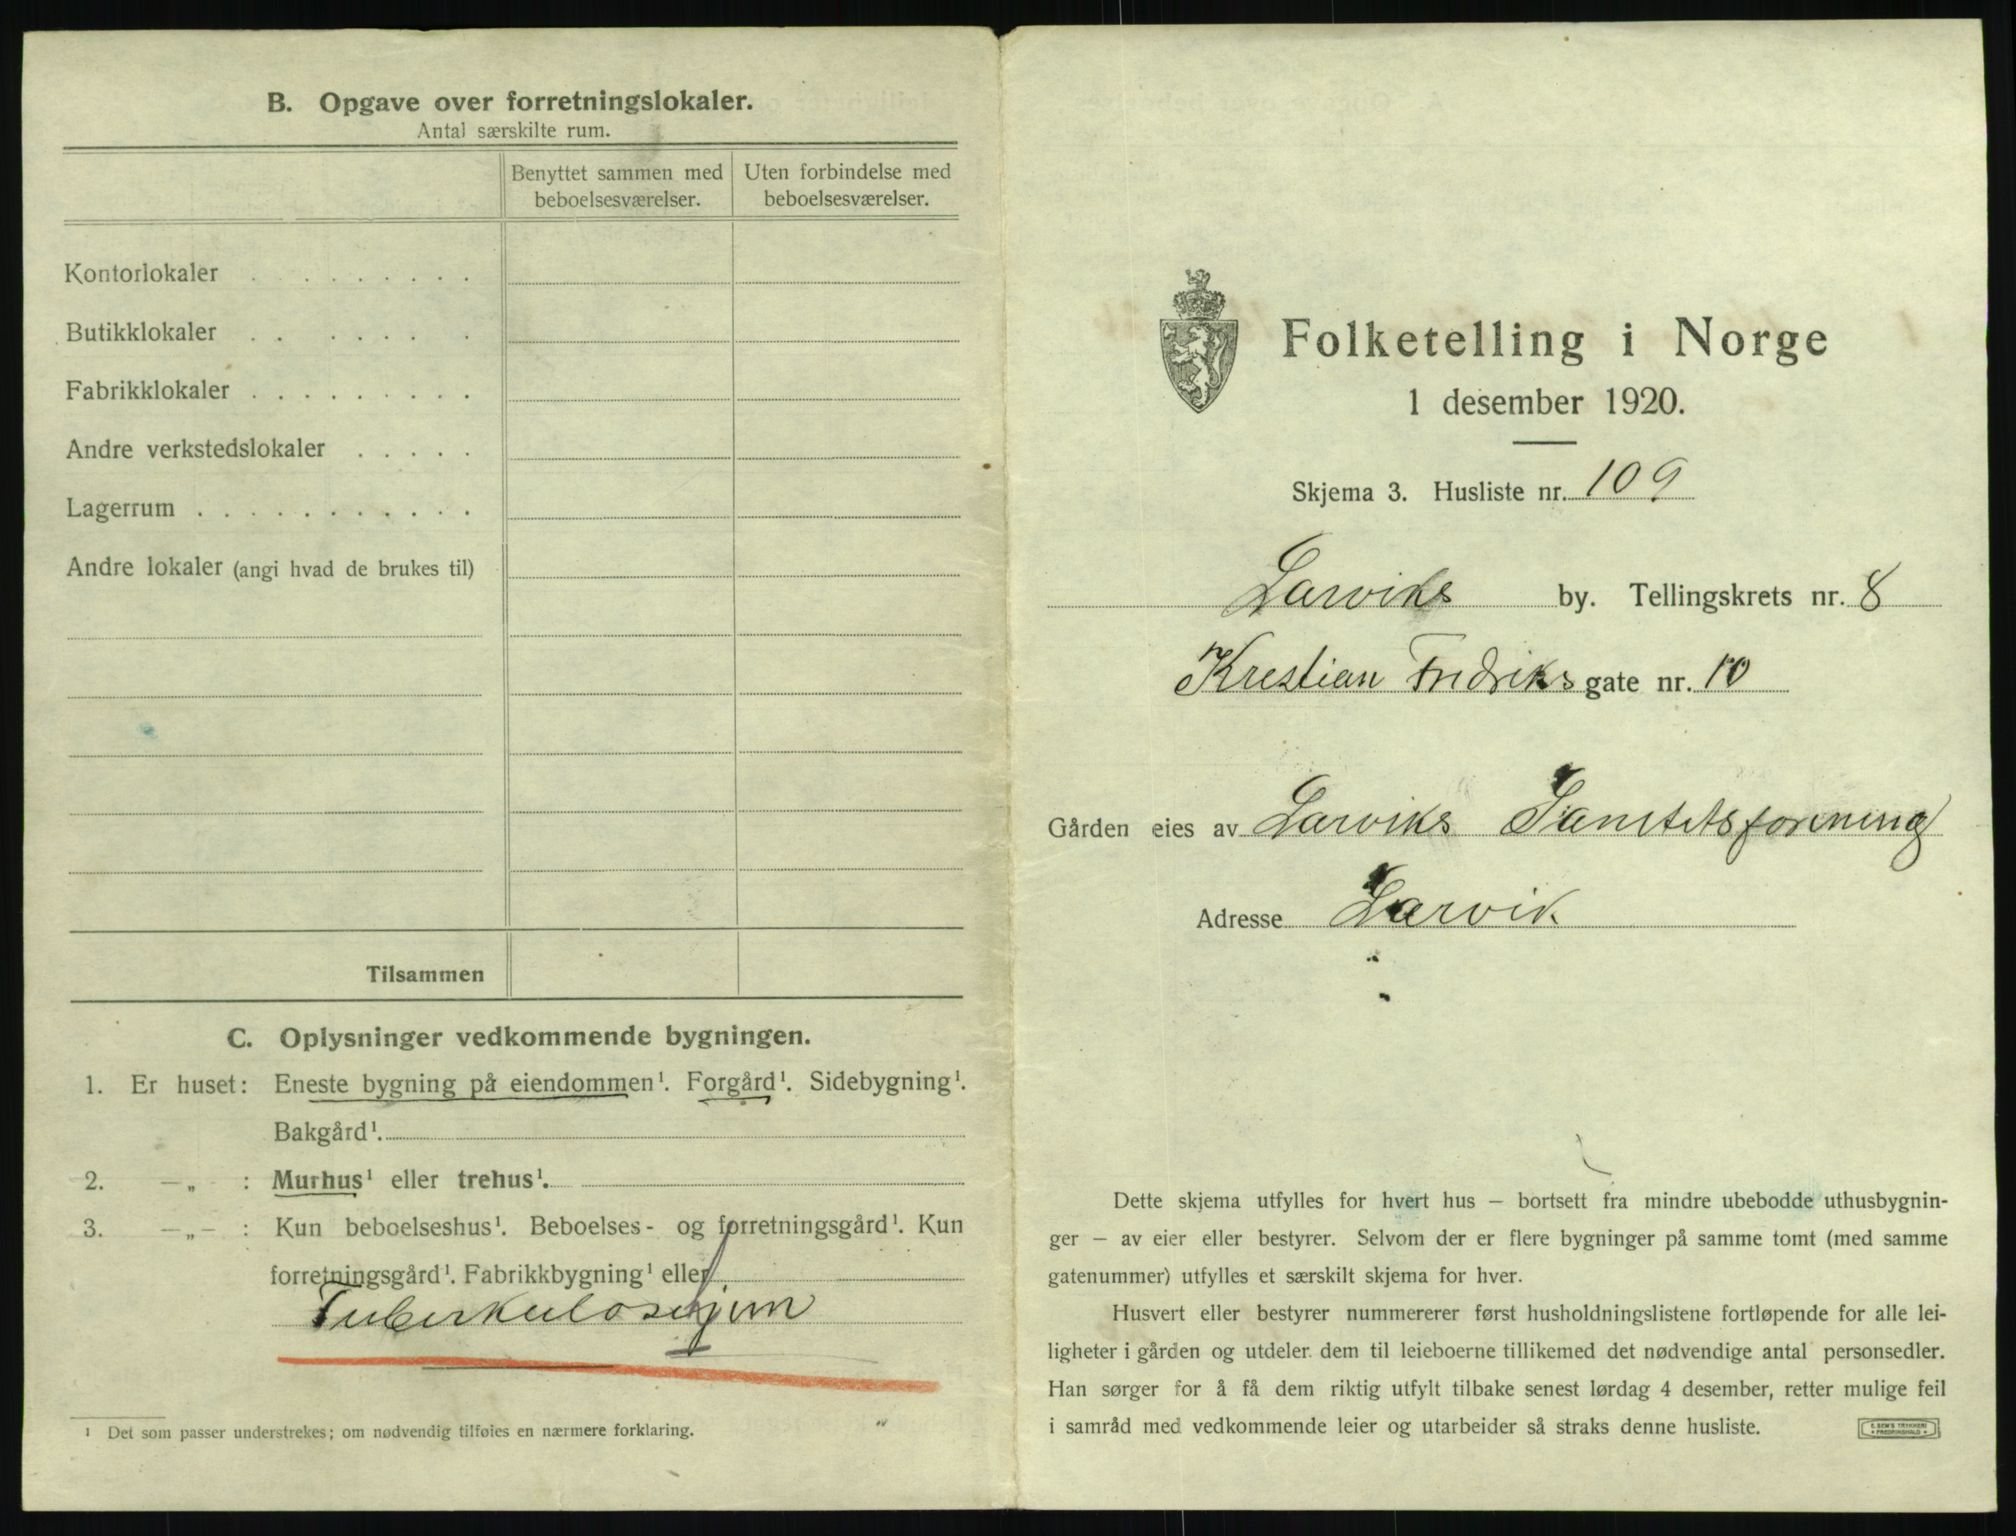 B. Opgave over forretningslokaler.
Antal særskilte rum.
Benyttet sammen med beboelsesværelser.
Uten forbindelse med beboelsesværelser.
Kontorlokaler . . . . . . . . .
Butikklokaler . . . . . . . .
Fabrikklokaler . . . . . . . . .
Andre verkstedslokaler . . . . .
Lagerrum . . . . . . . . . . .
Andre lokaler (angi hvad de brukes til)
Tilsammen
C. Oplysninger vedkommende bygningen.
1. Er huset: Eneste bygning på eiendommen¹. Forgård¹. Sidebygning¹.
Bakgård¹.
2. —„ : Murhus¹ eller trehus¹.
3. —„— : Kun beboelseshus¹. Beboelses- og forretningsgård¹. Kun
forretningsgård¹. Fabrikkbygning¹ eller
Tuberkulosehjem
¹ Det som passer understrekes; om nødvendig tilføies en nærmere forklaring.
Folketelling i Norge
1 desember 1920.
Skjema 3. Husliste nr. 109
Larviks by. Tellingskrets nr. 8
Krestian Fredriks gate nr. 10
Gården eies av Larviks Sanitetsforening
Adresse Larvik
Dette skjema utfylles for hvert hus – bortsett fra mindre ubebodde uthusbygnin-
ger – av eier eller bestyrer. Selvom der er flere bygninger på samme tomt (med samme
gatenummer) utfylles et særskilt skjema for hver.
Husvert eller bestyrer nummererer først husholdningslistene fortløpende for alle lei-
ligheter i gården og utdeler dem til leieboerne tillikemed det nødvendige antal personsedler.
Han sørger for å få dem riktig utfylt tilbake senest lørdag 4 desember, retter mulige feil
i samråd med vedkommende leier og utarbeider så straks denne husliste.
E. SEM'S TRYKKERI
FREDRIKSHALD